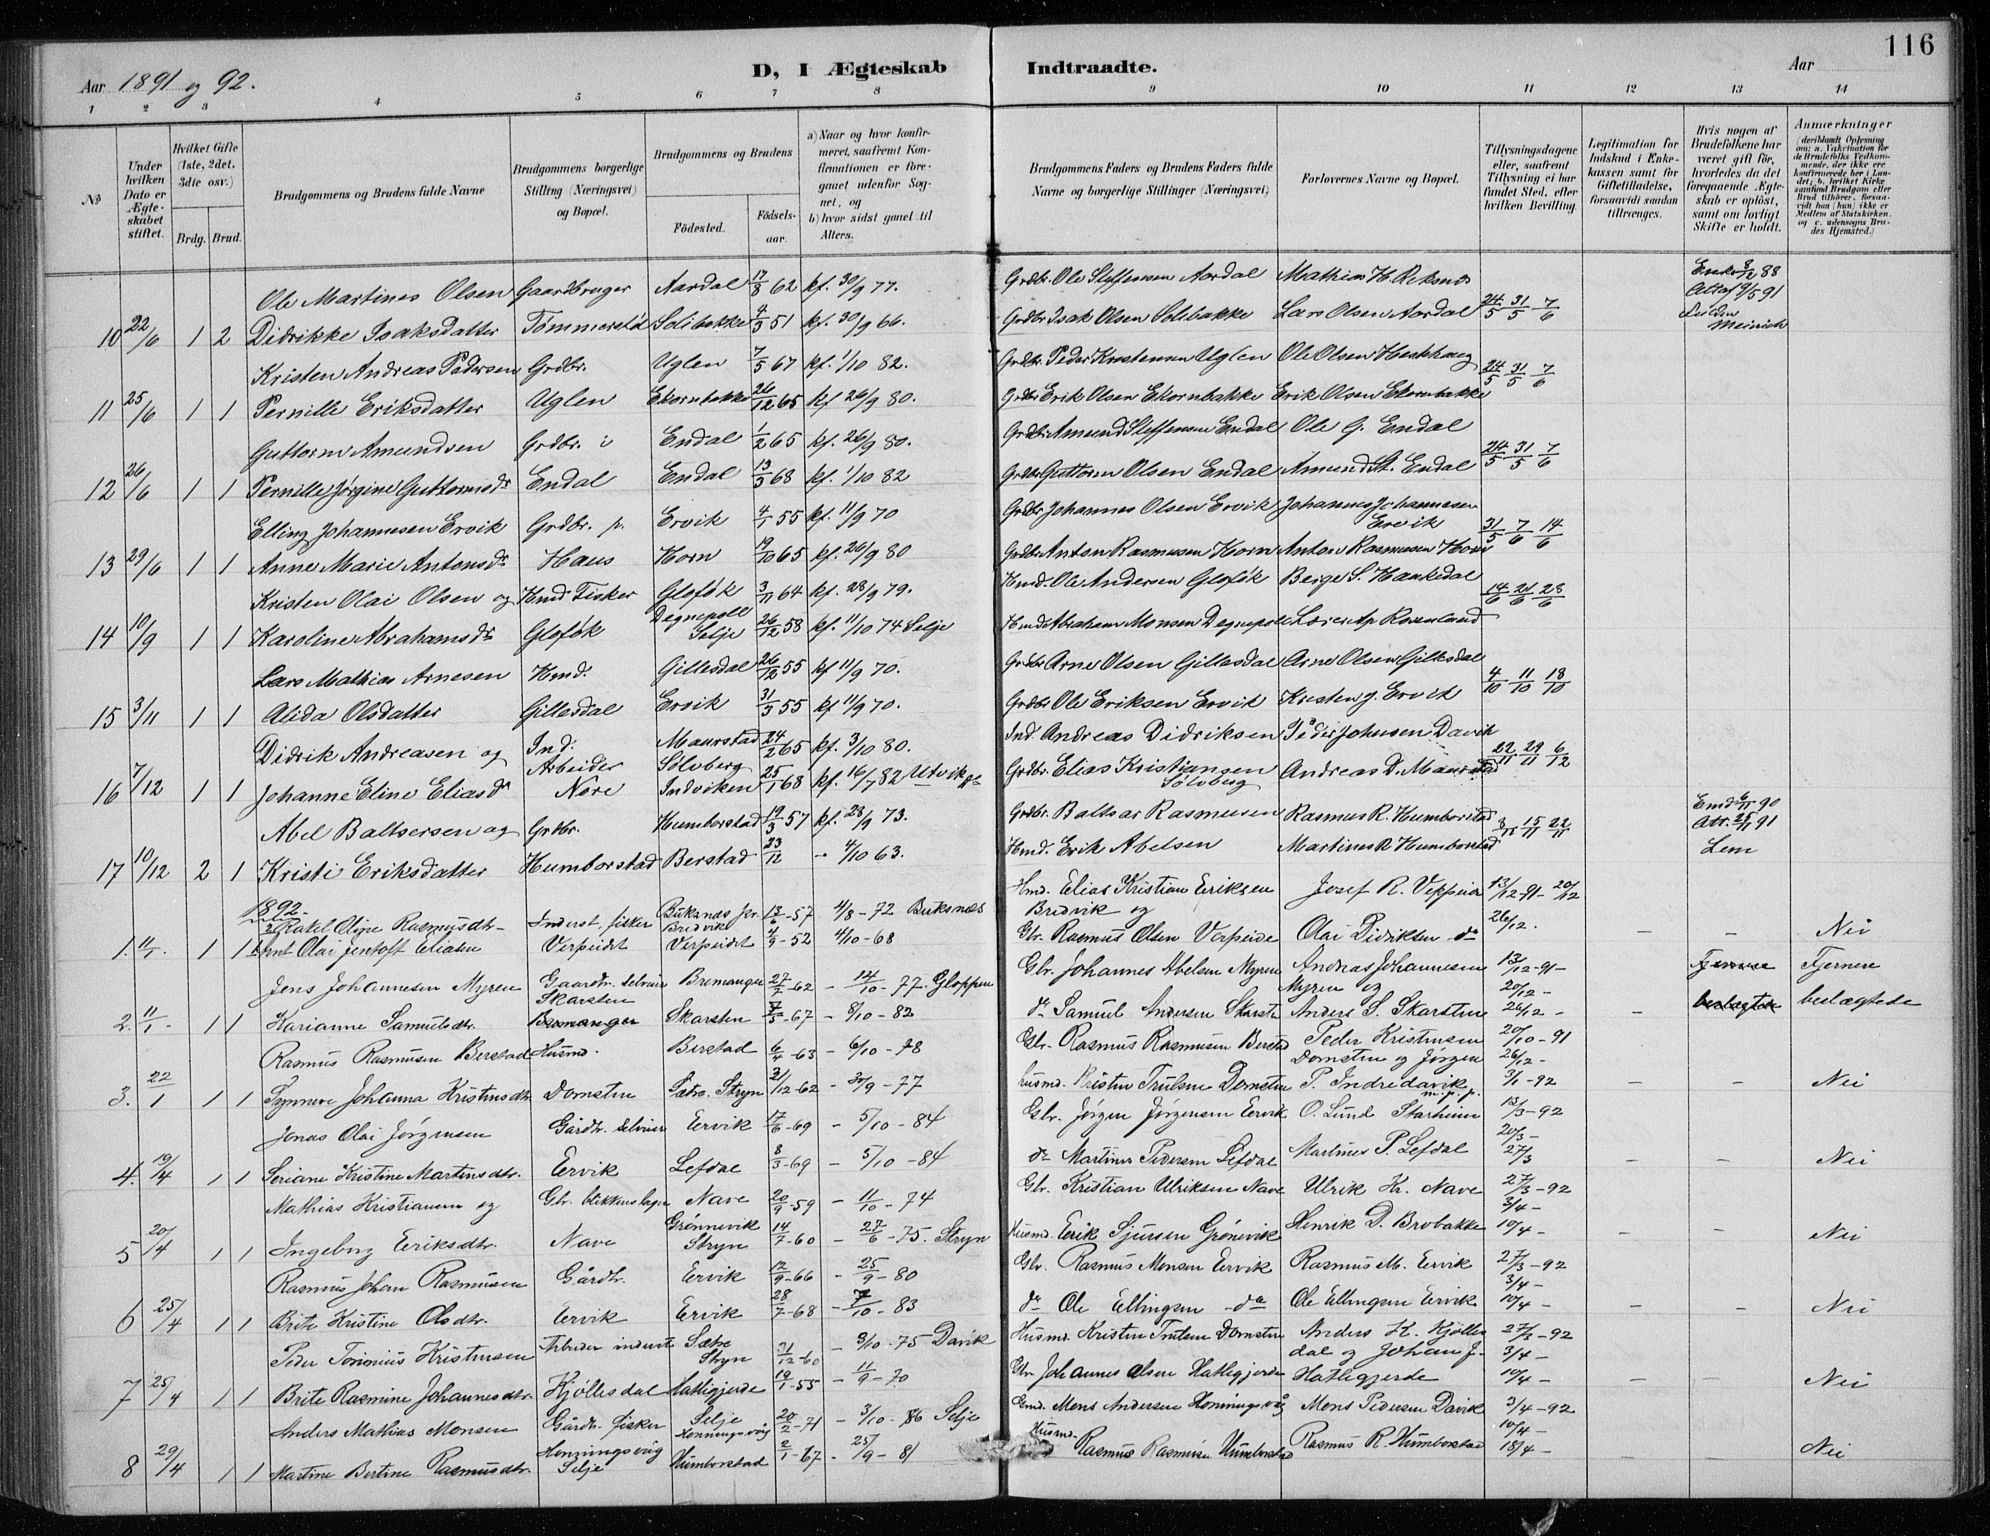 116
Aar 1891 og 92.
D, I Ægteskab Indtraadte.
Aar
1 2 3 4 5 6 7 8 9 10 11 12 13 14
No
Under hvilken Dato er Ægteskabet stiftet.
Hvilket Gifte (1ste, 2det, 3die osv.)
Brdg. Brud.
Brudgommens og Brudens fulde Navne
Brudgommens borgerlige Stilling (Næringsvei) og Bopæl.
Brudgommens og Brudens
Födested.
Födselsaar.
a) Naar og hvor konfirmeret, saafremt Konfirmationen er foregaaet udenfor Sognet, og
b) hvor sidst gaaet til Alters.
Brudgommens Faders og Brudens Faders fulde Navne og borgerlige Stillinger (Næringsvei)
Forlovernes Navne og Bopæl.
Tillysningsdagene eller, saafremt Tillysning ei har fundet Sted, efter hvilken Bevilling.
Legitimation for Indskud i Enkekassen samt for Giftetilladelse, forsaavidt saadan tiltrænges.
Hvis nogen af Brudefolkene har været gift för, hvorledes da det foregaaende Ægteskab er oplöst, samt om lovligt Skifte er holdt.
Anmærkninger
(deriblandt Oplysning om: a. Vakcination for de Brudefolks Vedkommende, der ikke ere konfirmerede her i Landet; b. hvilket Kirkesamfund Brudgom eller Brud tilhörer, forsaavidt han (hun) ikke er Medlem af Statskirken, og c. udensogns Brudes Hjemsted.)
Ole Martines Olsen Gaardbruger Aardal 17/8 62 kf. 30/9 77. Grdbr. Ole Steffensen Aardal Mathias H. Reksnes Enke 3/12 88
10 22/6 1 2 Didrikke Isaksdatter Tømmerstøl Solibakke 4/3 51 kf. 30/9 66. Grdbr. Isak Olsen Solibakke Lars Olsen Aardal 24/5 31/5 7/6 Attest 9/5 91
Meinich
Kristen Andreas Pedersen Grdbr. Uglen 7/5 67 kf. 1/10 82. Grdbr. Peder Kristensen Uglen Ole Olsen Hesthaug
11 25/6 1 1 Pernille Eriksdatter Uglen Ekornbakke 26/12 65 kf 26/9 80. Grdbr. Erik Olsen Ekornbakke Erik Olsen Ekornbakke 24/5 31/5 7/6
Guttorm Amundsen Grdbr. i Endal 1/2 65 kf. 26/9 80. Grdbr. Amund Steffensen Endal Ole G. Endal
12 26/6 1 1 Pernille Jørgine Guttormsdr Endal Endal 13/3 68 kf. 1/10 82 Grdbr Guttorm Olsen Endal Amund St. Endal 24/5 31/5 7/6
Elling Johannesen Ervik Grdbr. p. Ervik 4/1 55 kf. 11/9 70 Grdbr Johannes Olsen Ervik Johannes Johannesen Ervik
13 29/6 1 1 Anne Marie Antonsdr Haus Horn 19/10 65 kf. 26/9 80 Grdbr Anton Rasmussen Horn Anton Rasmussen Horn 31/5 7/6 14/6
Kristen Olai Olsen og Hmd Fisker Gloføk 3/11 64 kf. 28/9 79. Hmd. Ole Andersen Gloføk Berge S. Haukedal
14 10/9 1 1 Karoline Abrahamsdr Gloføk Degnepoll Selje 26/12 58 kf. 11/10 74 Selje Hmd Abraham Monsen Degnepoll Lærer Ap Rosenland 14/6 21/6 28/6
Lars Mathias Arnesen Hmd. Gillesdal 26/12 55 kf 11/9 70. Grdbr Arne Olsen Gillesdal Arne Olsen Gillesdal
15 3/11 1 1 Alida Olsdatter Gillesdal Ervik 31/3 55 kf 11/9 70. Grdbr Ole Eriksen Ervik Kristen J. Ervik 4/10 11/10 18/10
Didrik Andreasen og Ind. Arbeider Maurstad 24/2 65 kf. 3/10 80. Ind. Andreas Didriksen Peder Johnsen Davik
16 7/12 1 1 Johanne Eline Eliasdr Nore Sølvberg Indviken 25/1 68 kf. 16/7 82 Utvik Grdbr. Elias Kristiansen Sølvberg Andreas D. Maurstad 22/11 29/11 6/12
Abel Baltsersen og Grdbr. Humborstad 19/3 57 kf. 28/9 73. Grdbr. Baltsar Rasmussen Rasmus R. Humborstad Emd 6/11 90
17 10/12 2 1 Kristi Eriksdatter Humborstad Berstad 23/12 4/10 63. Hmd. Erik Abelsen Martines R Humborstad 8/11 15/11 22/11 Att. 25/11 91
Lem
1892
Ratel Oline Rasmusdtr Inderst. fisker Buksnæs pr. Bredvik 13/6-57 4/8-72 Buksnæs Hmd. Elias Kristian Eriksen Bredvik og Josef R. Verpeide 13/12-91- 20/12
1. 11/1 1 1 Ernt Olai Jentoft Eliasen Verpeidet Verpeidet 4/9-52 4/10-68 Gbr. Rasmus Olsen Verpeide Olai Didriksen do 26/12. - - Nei
Jens Johannesen Myren Gaardbr. Bremanger 27/7-62 - 14/10-77. Gloppen Gbr. Johannes Abelsen Myren Andreas Johannesen Myren og 13/12-91- Fjernere Fjernere
2. 11/1 1 1 Karianne Samuelsdtr. Skarsten Bremanger Skarsten 7/5-67 - 8/10-82 do Samuel Andersen Skarsten Anders S. Skarsten 20/12- 26/12 - - beslægtede beslægtede
Rasmus Rasmusen Berstad Husmd. Berstad 6/4-63 - 6/10-78 Gbr. Rasmus Rasmusen Berstad Peder Kristensen Domsten og Jørgen 20/10-91 26/12-
3. 22/1 1 1 Synneve Johanna Kristensdtr. Domsten Sætre Stryn 21/12-62 - 30/9-77 husmd. Kristen Trulsen Domsten P. Indredavik m.p.p. 3/1-92 - - Nei
Jonas Olai Jørgensen Gårdbr. Eervik 17/6-69 - 5/10-84 Gbr. Jørgen Jørgensen Eervik O. Lund Starheim 13/3-92 20/3-
4. 19/4 1 1 Seriane Kristine Martinsdtr. Eervik Lefdal 8/3-69 - 5/10-84 do Martinus Pedersen Lefdal Martines P. Lefdal 27/3 - - Nei
Mathias Kristiansen og Gbr. blikkenslager Nave 20/9-59 - 11/10-74 Gbr. Kristian Ulriksen Nave Ulrik Kr. Nave 27/3-92 3/4-
5 20/4 1 1 Ingeborg Eeriksdtr. Nave Grønnevik Stryn 14/7-60 - 27/6-75. Stryn Husmd. Eerik Sjursen Grønevik Henrik D. Brobakke 10/4- - - Nei
Rasmus Johan Rasmusen Gårdbr. Eervik 12/9-66 - 25/9-80 Gbr. Rasmus Monsen Eervik Rasmus M. Eervik 27/3-92 3/4-
6 25/4 1 1 Brite Kristine Olsdtr. Eervik Eervik 28/7-68 - 7/10-83 do Ole Ellingsen -do Ole Ellingsen Eervik 10/4- - - Nei
Peder Kristensen Arbeider inderst Sætre Stryn 21/12-60 - 9/10-75 Davik Husmd. Kristen Trulsen Domsten Anders K. Kjøllesdal og Johan J. 27/3-92 3/4-
7 25/4 1 1 Brite Rasmine Johannesdtr. Kjøllesdal Hatlegjerde 19/1-55 - 11/9-70 Gbr. Johannes Olsen Hatlegjerde Hatlegjerde 10/4- - - Nei
Anders Mathias Monsen Gårdbr. fisker Selje Honningsvåg 20/2-71 - 3/10-86 Selje Mons Andersen Honningsvåg Mons Pedersen Davik 3/4-92 10/4-
8 29/4 1 1 Martine Bertine Rasmusdtr. Honningsvåg Selje Humborstad 2/1-67 - 25/9-81 Husmd. Rasmus Rasmusen Humborstad Rasmus R. Humborstad 18/4- - - Nei